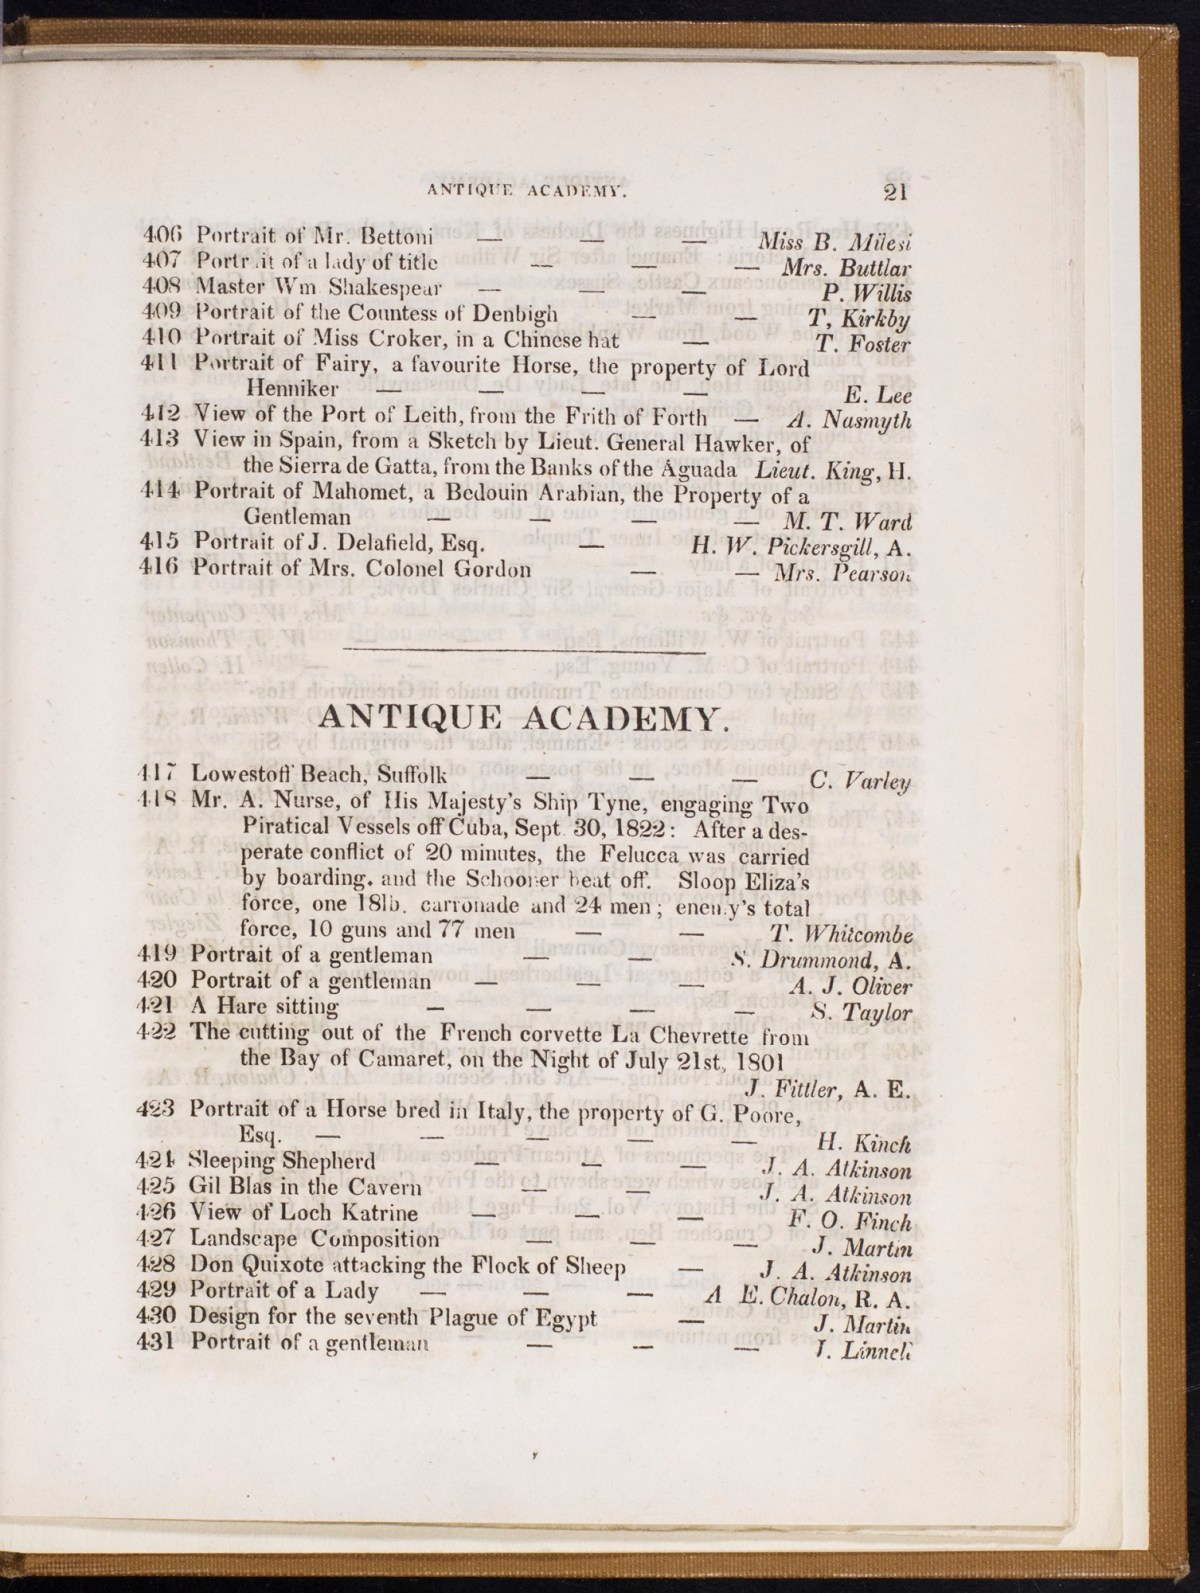 ANTIQUE ACADEMY. 21
406 Portrait of Mr. Bettoni — — — Miss B. Milesi
407 Portrait of a lady of title — — — Mrs. Buttlar
408 Master Wm Shakespear — — — P. Willis
409 Portrait of the Countess of Denbigh — — T, Kirkby
410 Portrait of Miss Croker, in a Chinese hat — T. Foster
411 Portrait of Fairy, a favourite Horse, the property of Lord
Henniker — — — — E. Lee
412 View of the Port of Leith, from the Frith of Forth — A. Nasmyth
413 View in Spain, from a Sketch by Lieut. General Hawker, of
the Sierra de Gatta, from the Banks of the Aguada Lieut. King, H.
414 Portrait of Mahomet, a Bedouin Arabian, the Property of a
Gentleman — — — — M. T. Ward
415 Portrait of J. Delafield, Esq. — H. W. Pickersgill, A.
416 Portrait of Mrs. Colonel Gordon — — Mrs. Pearson
ANTIQUE ACADEMY.
417 Lowestoff Beach, Suffolk — — — C. Varley
418 Mr. A. Nurse, of His Majesty's Ship Tyne, engaging Two
Piratical Vessels off Cuba, Sept. 30, 1822: After a des-
perate conflict of 20 minutes, the Felucca was carried
by boarding, and the Schooner beat off. Sloop Eliza's
force, one 18lb. carronade and 24 men; enemy's total
force, 10 guns and 77 men — — T. Whitcombe
419 Portrait of a gentleman — — S. Drummond, A.
420 Portrait of a gentleman — — — A. J. Oliver
421 A Hare sitting — — — — S. Taylor
422 The cutting out of the French corvette La Chevrette from
the Bay of Camaret, on the Night of July 21st, 1801
J. Fittler, A. E.
423 Portrait of a Horse bred in Italy, the property of G. Poore,
Esq. — — — — — H. Kinch
424 Sleeping Shepherd — — — J. A. Atkinson
425 Gil Blas in the Cavern — — J. A. Atkinson
426 View of Loch Katrine — — — F. O. Finch
427 Landscape Composition — — — J. Martin
428 Don Quixote attacking the Flock of Sheep — J. A. Atkinson
429 Portrait of a Lady — — — A E. Chalon, R. A.
430 Design for the seventh Plague of Egypt — J. Martin
431 Portrait of a gentleman — — — J. Linnell